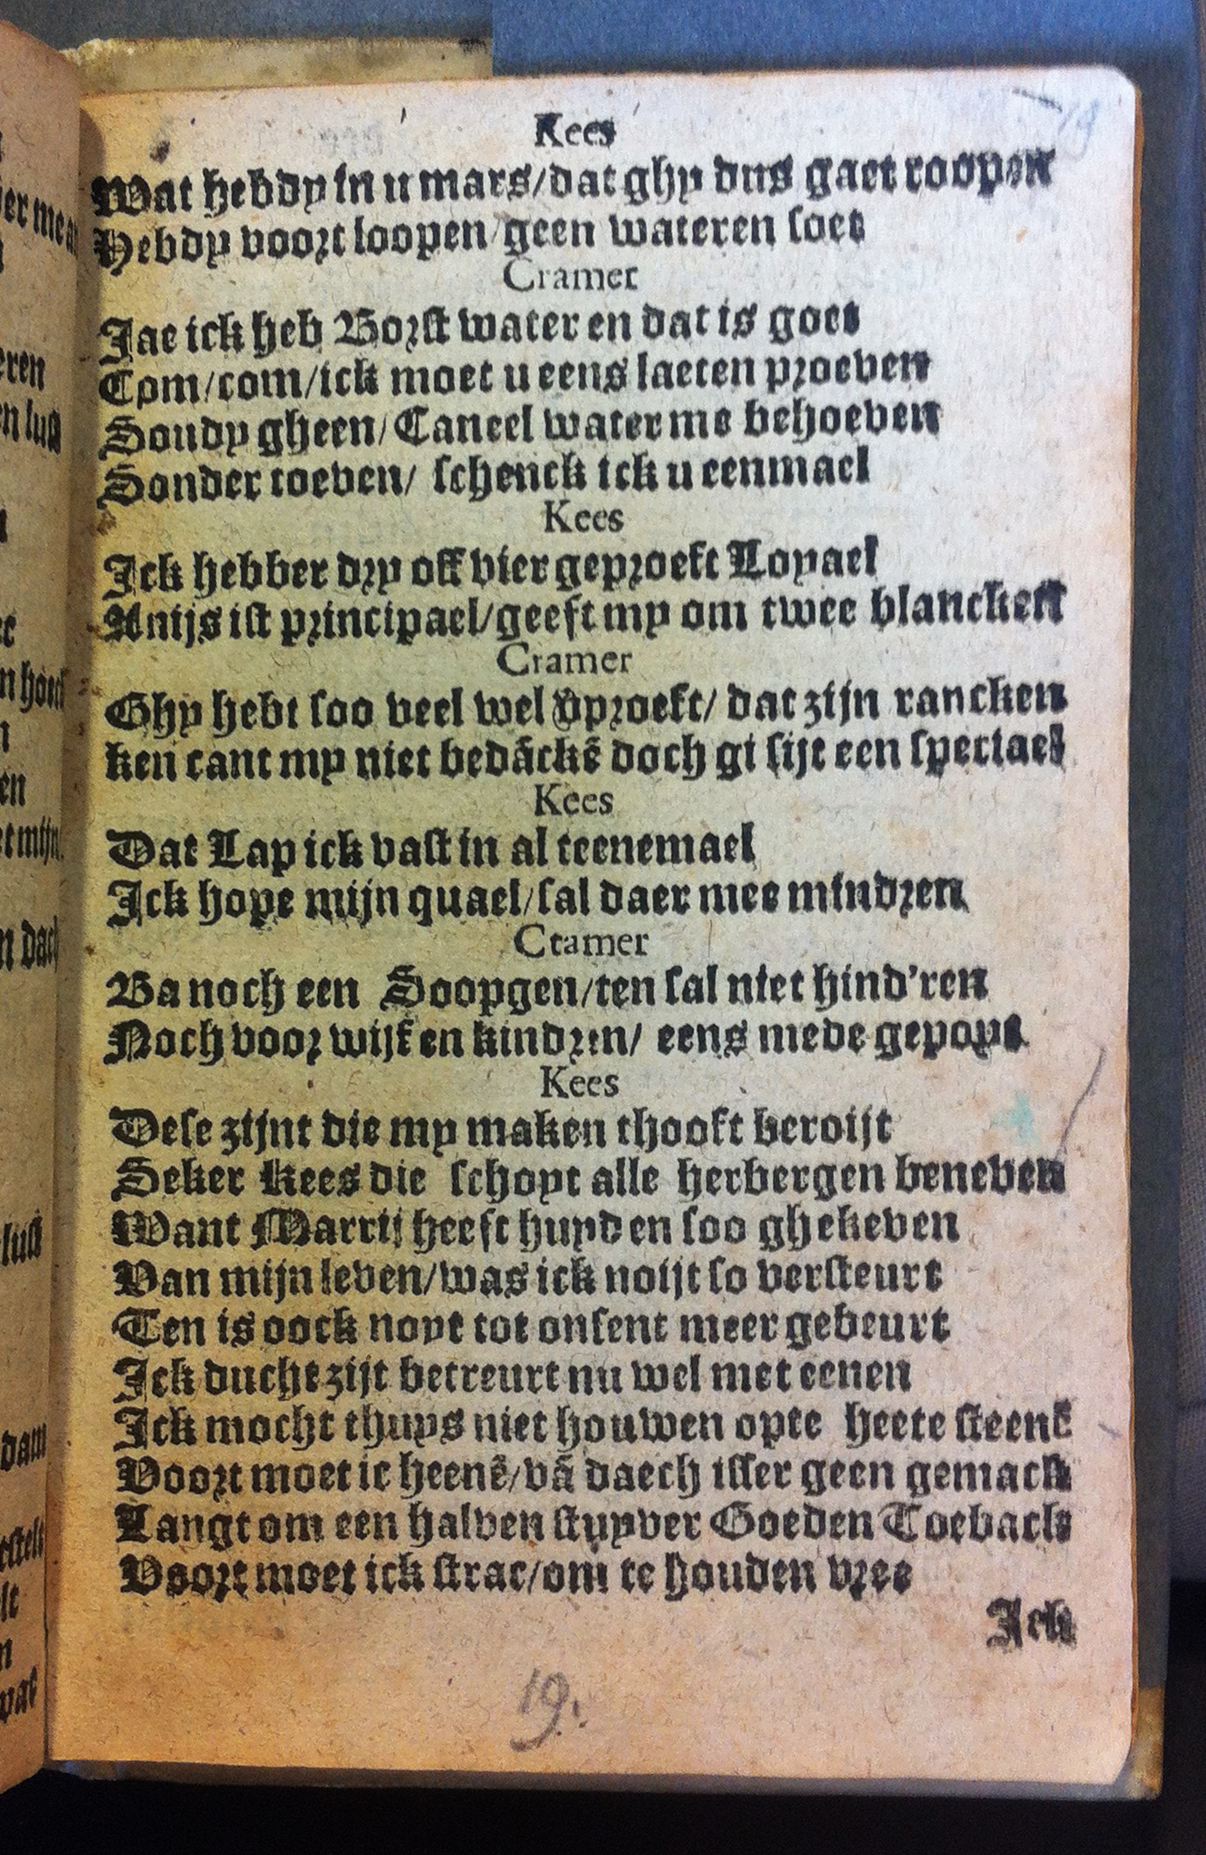 Kees
Wat hebdy in u mars/dat ghy dus gaet roopen
Hebdy voort loopen/geen wateren soet
Cramer
Jae ick heb Borst water en dat is goet
Com/com/ick moet u eens laeten proeven
Soudy gheen/Caneel water me behoeven
Sonder toeven/ schenck ick u eenmael
Kees
Ick hebber dry off vier geproeft Loyael
Anijs ist principael/geeft my om twee blancken
Cramer
Ghy hebt soo veel wel ghproeft/ dat zijn rancken
ken cant my niet bedãckẽ doch gi sijt een speciael
Kees
Dat Lap ick vast in al teenemael
Ick hope mijn quael/sal daer mee mindren
Ctamer
Ba noch een Soopgen/ten sal niet hind'ren
Noch voor wijf en kindren/ eens mede gepoyt
Kees
Dese zijnt die my maken thooft beroijt
Seker Kees die schoyt alle herbergen beneven
Want Marrij heeft huyden soo ghekeven
Van mijn leven/was ick noijt so versteurt
Ten is oock noyt tot onsent meer gebeurt
Ick ducht zijt betreurt nu wel met eenen
Ick mocht thuys niet houwen opte heete steenē
Voort moet ic heenẽ/vã daech isser geen gemack
Langt om een halven stuyver Goeden Toeback
Voort moet ick strac/om te houden vree
Ick
19.
19